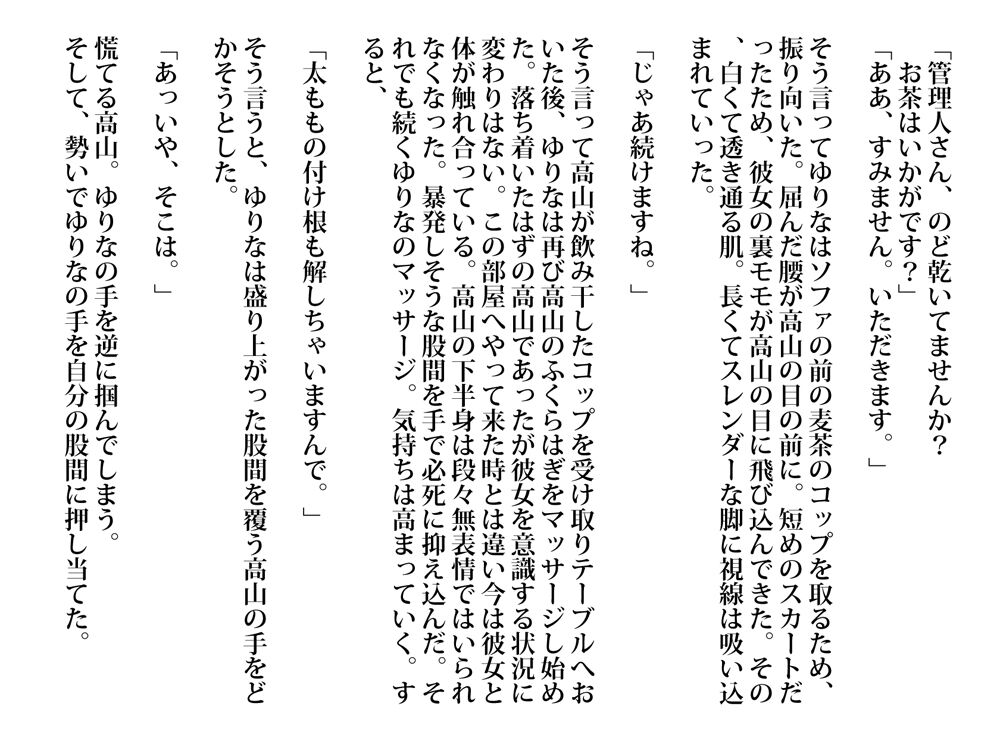 「管理人さん、のど乾いてませんか？
お茶はいかがです？」
「ああ、すみません。いただきます。」
そう言ってゆりなはソファの前の麦茶のコップを取るため、
振り向いた。屈んだ腰が高山の目の前に。短めのスカートだ
ったため、彼女の裏モモが高山の目に飛び込んできた。その
、白くて透き通る肌。長くてスレンダーな脚に視線は吸い込
まれていった。
「じゃあ続けますね。」
そう言って高山が飲み干したコップを受け取りテーブルへお
いた後、ゆりなは再び高山のふくらはぎをマッサージし始め
た。落ち着いたはずの高山であったが彼女を意識する状況に
変わりはない。この部屋へやって来た時とは違い今は彼女と
体が触れ合っている。高山の下半身は段々無表情ではいられ
なくなった。暴発しそうな股間を手で必死に抑え込んだ。そ
れでも続くゆりなのマッサージ。気持ちは高まっていく。す
ると、
「太ももの付け根も解しちゃいますんで。」
そう言うと、ゆりなは盛り上がった股間を覆う高山の手をど
かそうとした。
「あっいや、そこは。」
慌てる高山。ゆりなの手を逆に掴んでしまう。
そして、勢いでゆりなの手を自分の股間に押し当てた。